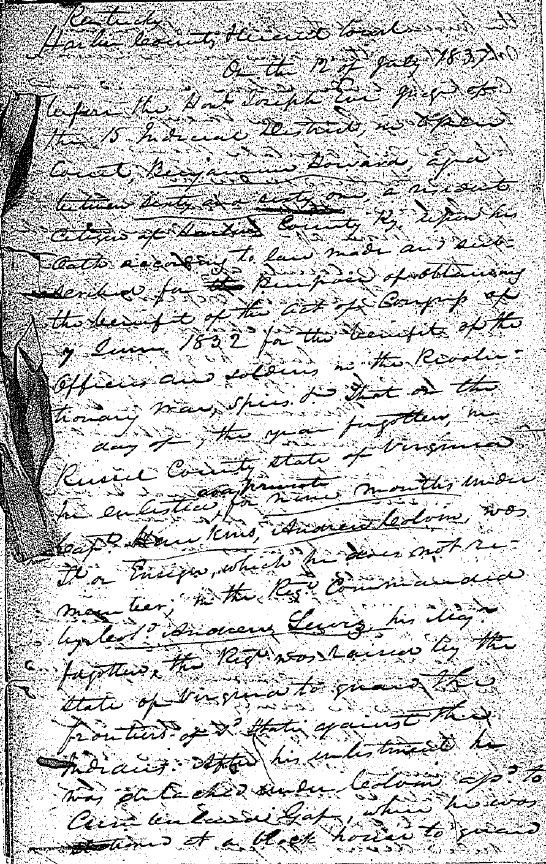 Kentucky
Harlan County Circuit Court
On the 12 of July 1837
before the Honl Joseph Eve Judge of
the 15 Judicial District, in open
Court, Benjamin Howard, aged
between Sixty and sixty one, a resident
citizen of Harlan County Ky. upon his
Oath according to law made and sub-
scribed for the purpose of obtaining
the benefit of the act of Congress of
7 June 1832 for the benefit of the
officers and soldiers in the Revolu-
tionary War, Spies &c That on the
day of , the year forgotten, in
Russel County State of Virginia
as a private
he enlisted for nine months under
Capt. Hawkins, Andrew Colvin, was
Lt or Ensign, which he does not re-
member, in the Regt. Commanded
by Col. Andrew Lewis, his Majr.
forgotten, the Regt was raised by the
State of Virginia to guard the
frontiers of sd State against the
Indians. After his enlistment he
was detached under Colvin afsd to
Cumberland Gap, where he was
stationed at a block house to guard